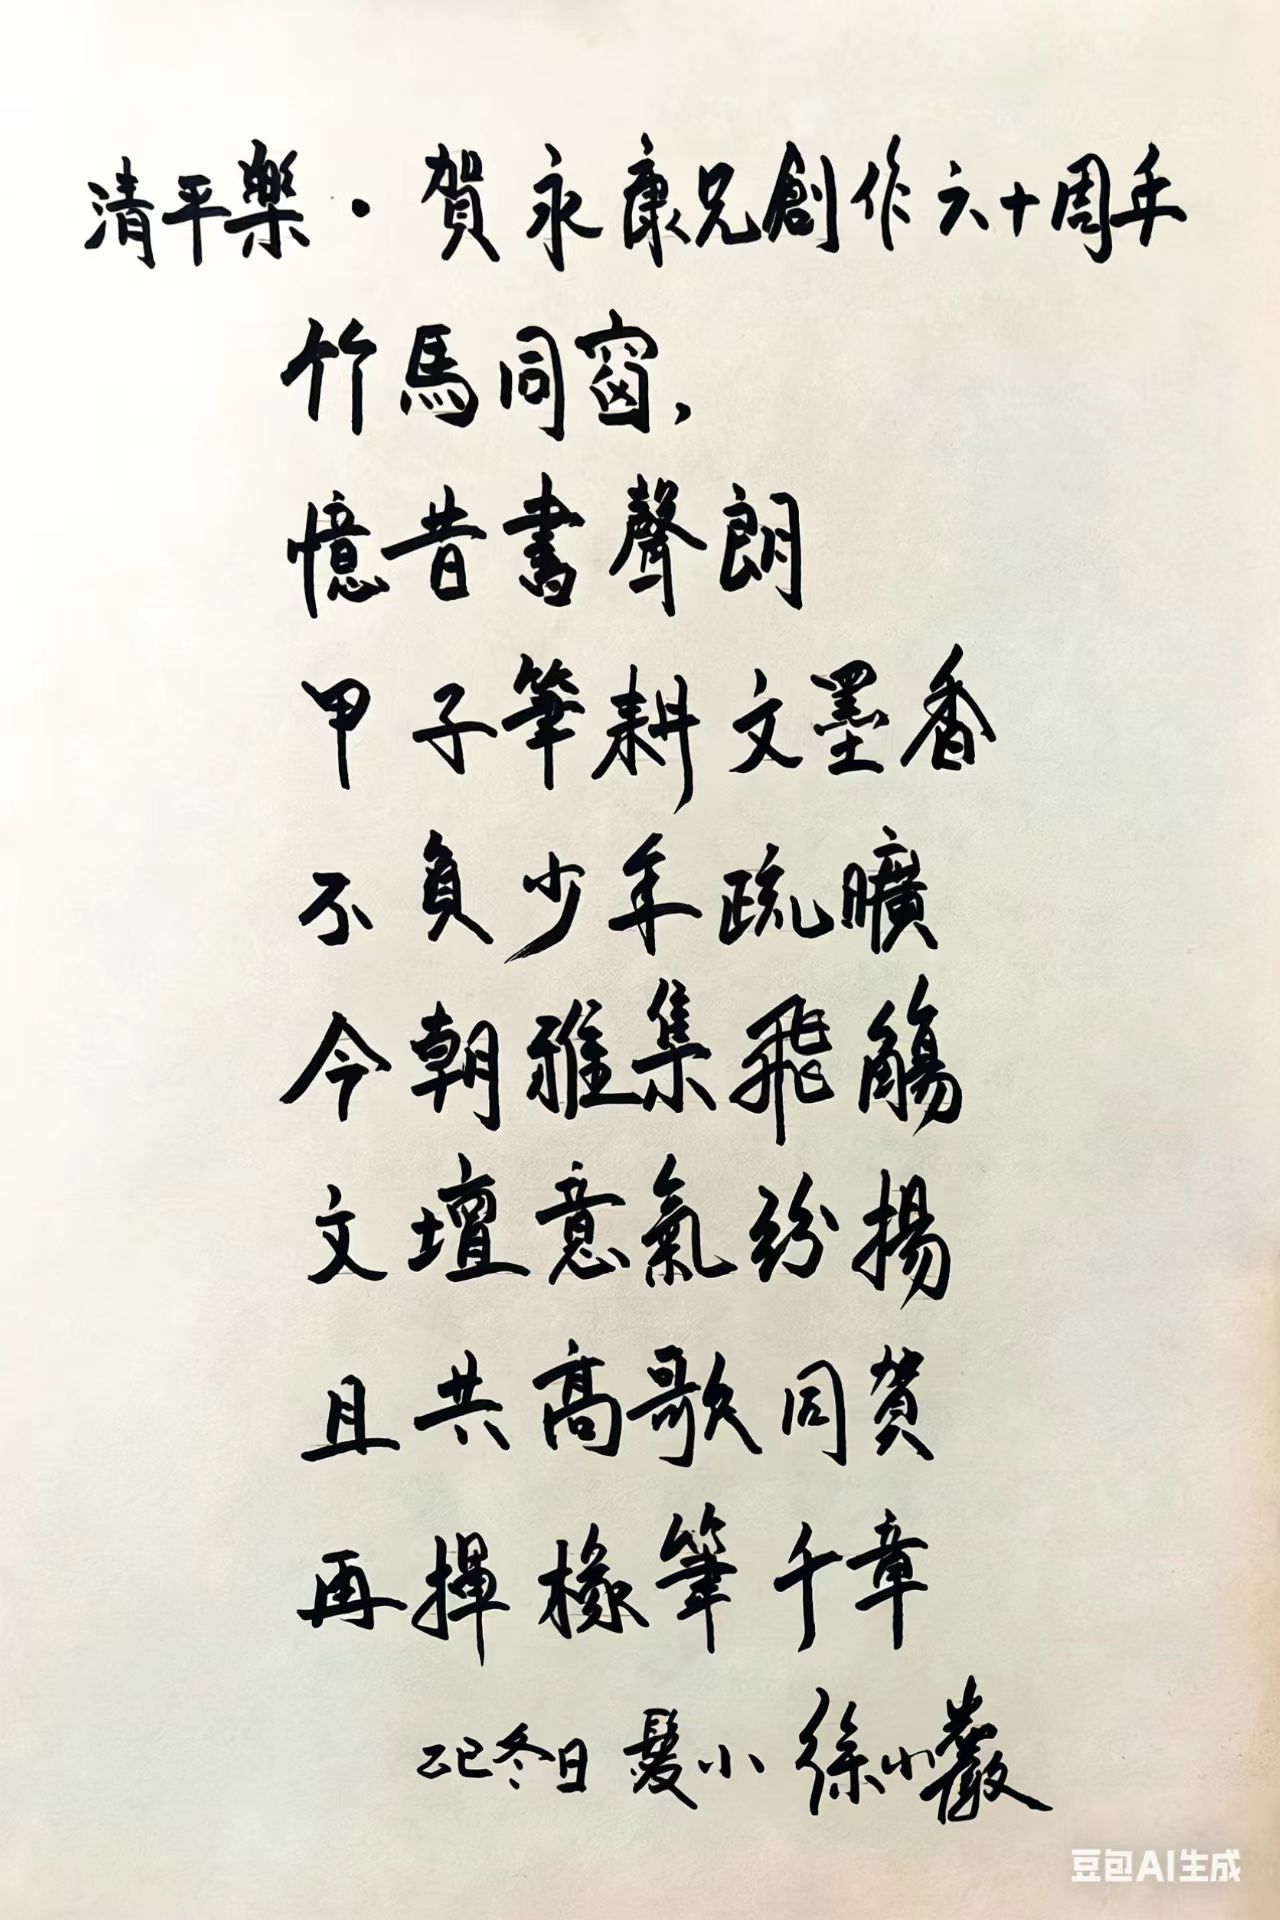 清平樂·賀永康兄創作六十周年
竹馬同窗,
憶昔書聲朗
甲子筆耕文墨香
不負少年疏曠
今朝雅集飛觴
文壇意氣紛揚
且共高歌同賀
再揮椽筆千章
乙巳冬日 髮小 徐小巖
豆包AI生成